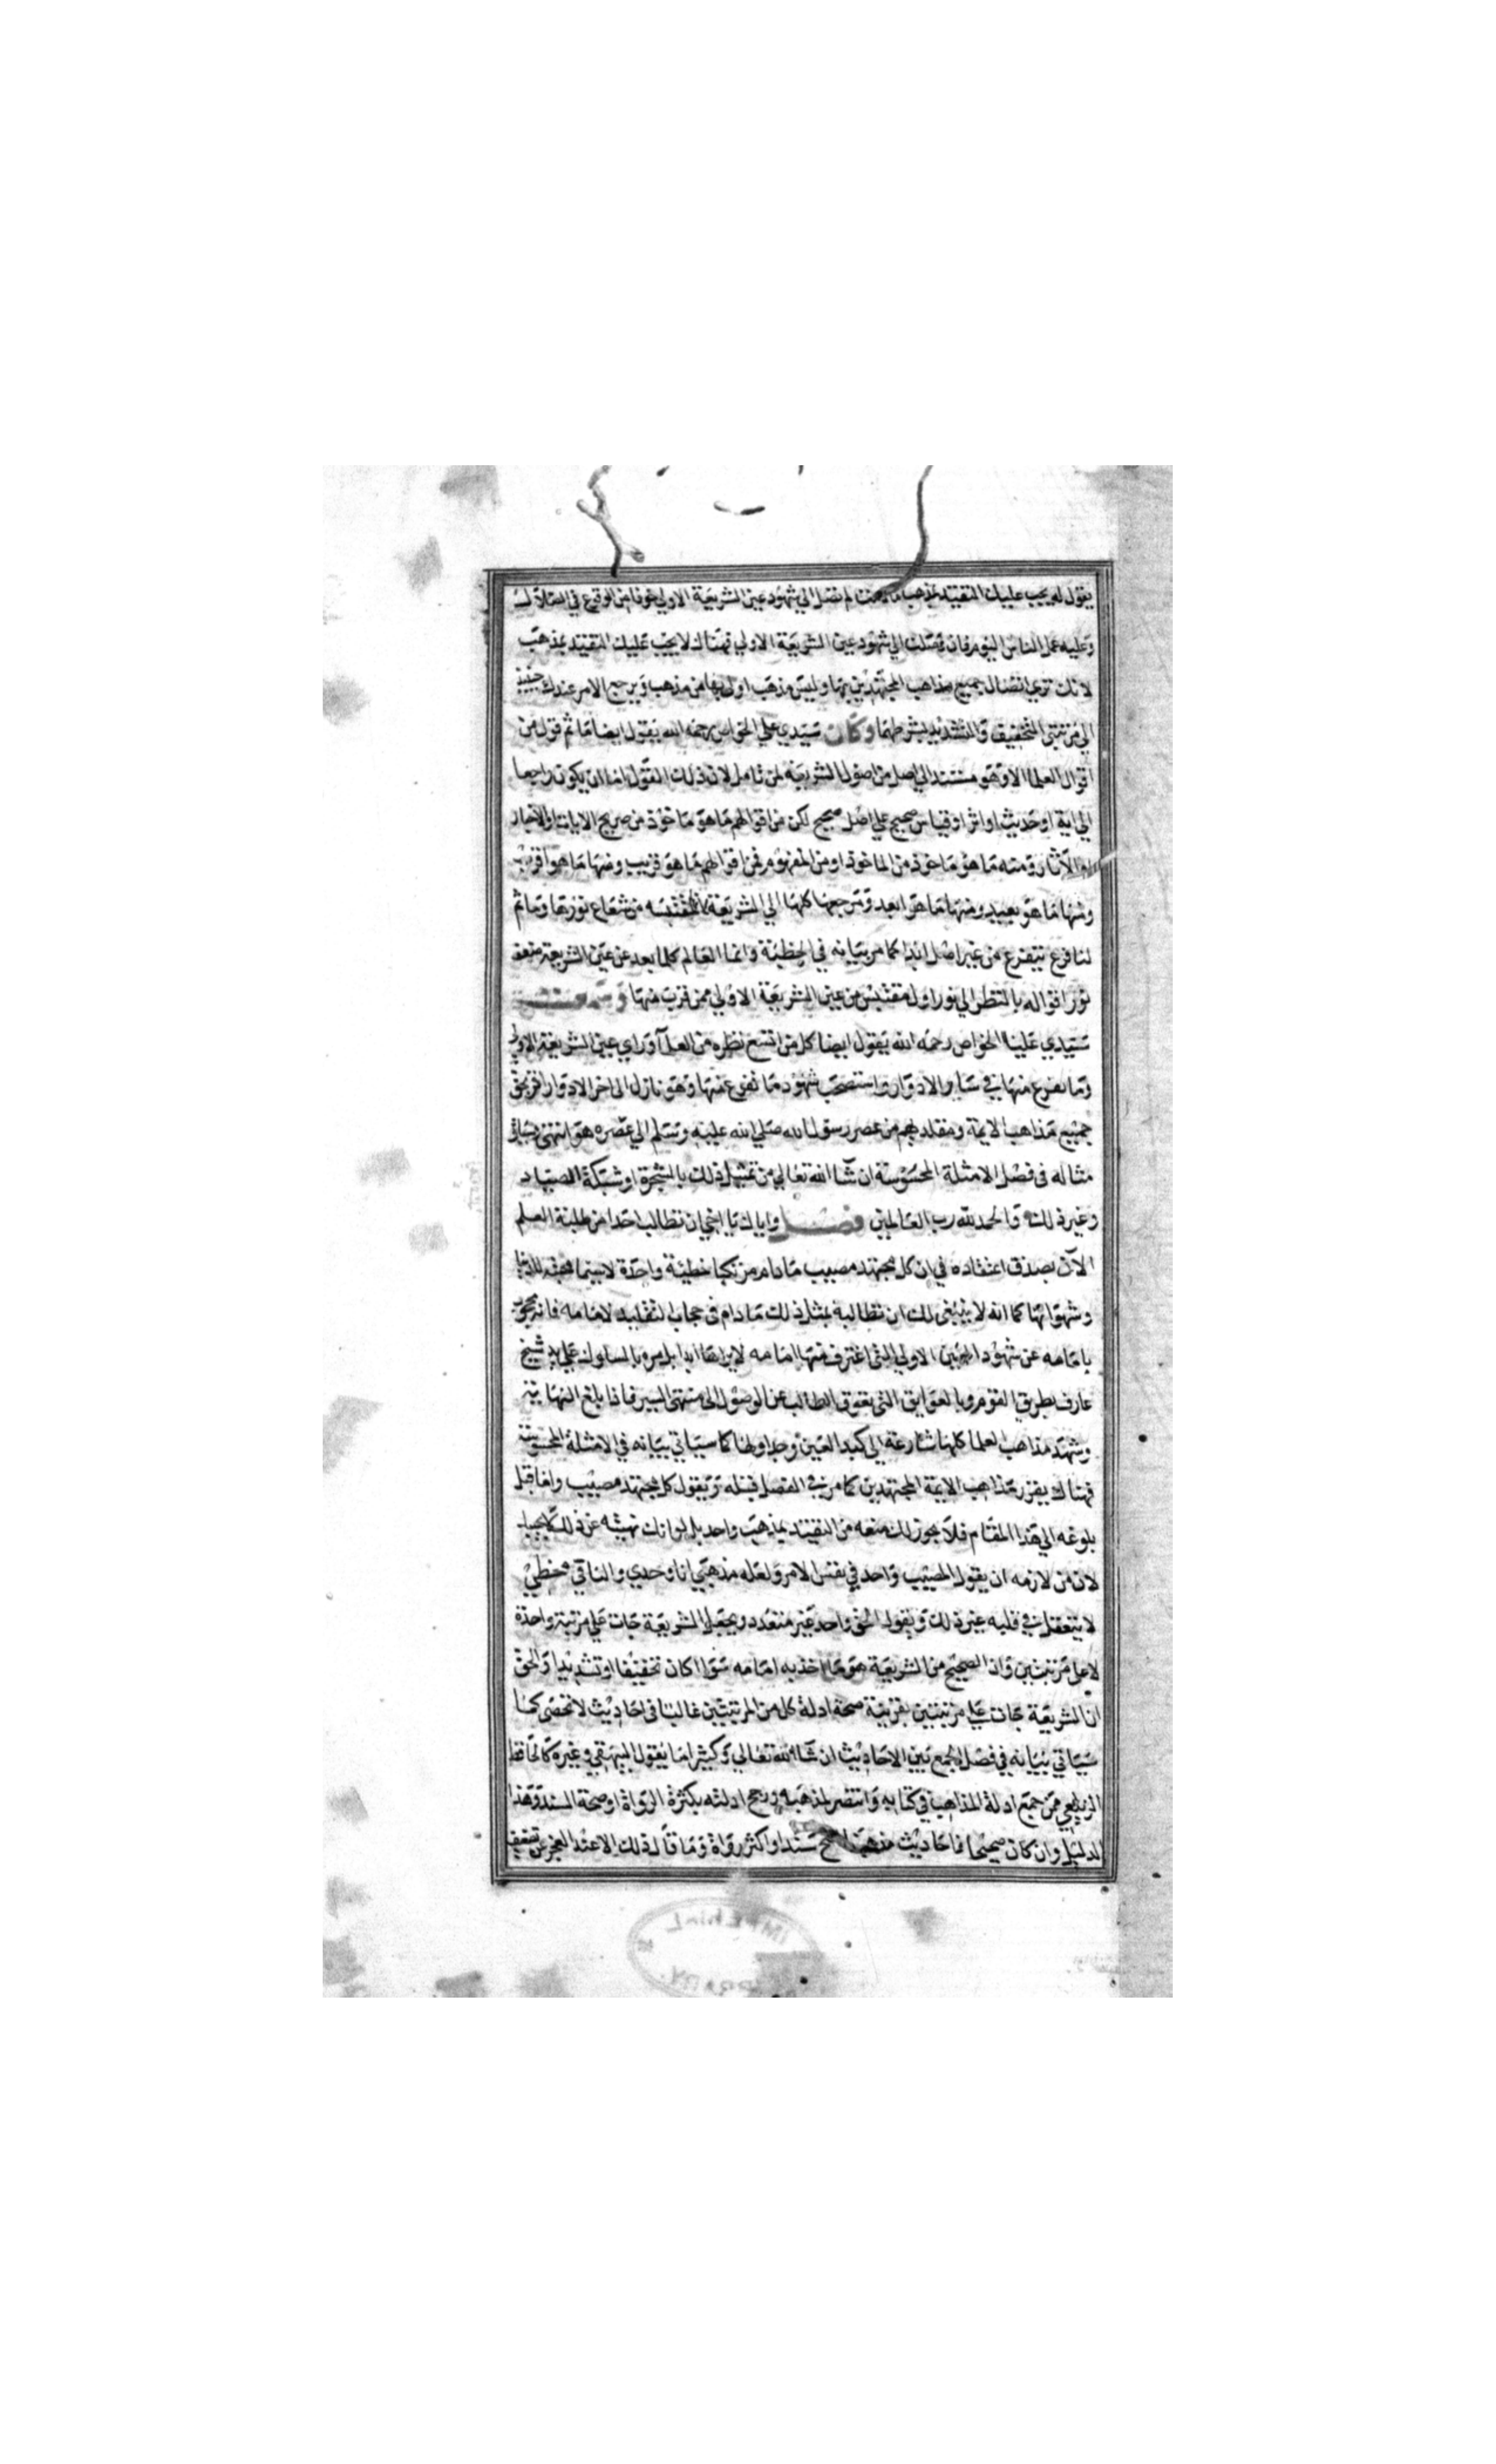 يقول له يجب عليك التقيد بمذهب ما دمت لم تصل الي شهود عين الشريعة الاولي خوفا من الوقوع في الضلال
وعليه عمل الناس اليوم فان وصلت الي شهود عين الشريعة الاولي فهناك لا يجب عليك التقيد بمذهب
لانك تري اتصال جميع مذاهب المجتهدين بها وليس مذهب اولي بها من مذهب ويرجع الامر عندك حينيذ
الي مرتبتي التخفيف والتشديد بشرطهما وكان سيدي علي الخواص رحمه الله يقول ايضا ما ثم قول من
اقوال العلما الا وهو مستند الي اصل من اصول الشريعة لمن تامل لان ذلك القول اما ان يكون راجعا
الي اية او حديث او اثر او قياس صحيح علي اصل صحيح لكن من اقوالهم ما هو ماخوذ من صريح الايات او الاخبار
او الآثار ومنه ما هو ماخوذ من الماخوذ او من المفهوم فمن اقوالهم ما هو قريب ومنها ما هو اقرب
ومنها ما هو بعيد ومنها ما هو ابعد ومرجعها كلها الي الشريعة لانها مقتبسه من شعاع نورها وما ثم
لنا فرع يتفرع من غير اصل ابدا كما مر بيانه في الخطبة وانما العالم كلما بعد عن عين الشريعة ضعف
نور اقواله بالنظر الي نور اول مقتبس من عين الشريعة الاولي ممن قرب منها وسمعت
سيدي عليا الخواص رحمه الله يقول ايضا كل من اتسع نظره من العلما وراي عين الشريعة الاولي
وما تفرع منها في ساير الادوار واستصحب شهود ما تفرع منها وهو نازل الي اخر الادوار اقر بحق
جميع مذاهب الايمة ومقلديهم من عصر رسول الله صلي الله عليه وسلم الي عصره هو انتهي وسياتي
مثاله في فصل الامثلة المحسوسة ان شا الله تعالي من تمثيل ذلك بالشجرة او شبكة الصياد
وغير ذلك والحمد لله رب العالمين فصل واياك يا اخي ان تطالب احدا من طلبة العلم
الآن بصدق اعتقاده في ان كل مجتهد مصيب ما دام مرتكبا خطيئة واحدة لاسيما محبته للدنيا
وشهواتها كما انه لا ينبغي لك ان تطالبه بمثل ذلك ما دام في حجاب التقليد لامامه فانه محجوب
بامامه عن شهود العين الاولي التي اغترف منها امامه لا يراها ابدا بل مره بالسلوك علي يد شيخ
عارف بطريق القوم وبالعوايق التي تعوق الطالب عن الوصول الي منتهي السير فاذا بلغ النهاية
وشهد مذاهب العلما كلها شارعة الي كبد العين وجداولها كما سياتي بيانه في الامثلة المحسوسة
فهناك يقرر مذاهب الايمة المجتهدين كما مر في الفصل قبله ويقول كل مجتهد مصيب واما قبل
بلوغه الي هذا المقام فلا يجوز لك منعه من التقيد بمذهب واحد بل لو انك نهيته عن ذلك لا يجيبك
لان من لازمه ان يقول المصيب واحد في نفس الامر ولعله مذهبي انا وحدي والباقي مخطئ
لا يتعقل في قلبه غير ذلك ويقول الحق واحد غير متعدد ويجعل الشريعة جات علي مرتبة واحدة
لا علي مرتبتين وان الصحيح من الشريعة هو ما اخذ به امامه سوا كان تخفيفا او تشديدا والحق
ان الشريعة جات علي مرتبتين بقرينة صحة ادلة كل من المرتبتين غالبا في احاديث لا تحصي كما
سياتي بيانه في فصل الجمع بين الاحاديث ان شا الله تعالي وكثيرا ما يقول البيهقي وغيره كالحافظ
الزيلعي ممن جمع ادلة المذاهب في كتابه وانتصر لمذهبه ورجح ادلته بكثرة الرواة او صحة السند وهذا
الدليل وان كان صحيحا فاحاديث مذهبنا اصح سندا واكثر رواة وما قال ذلك الا عند العجز عن تضعيف
IMPERIAL
LIBRARY